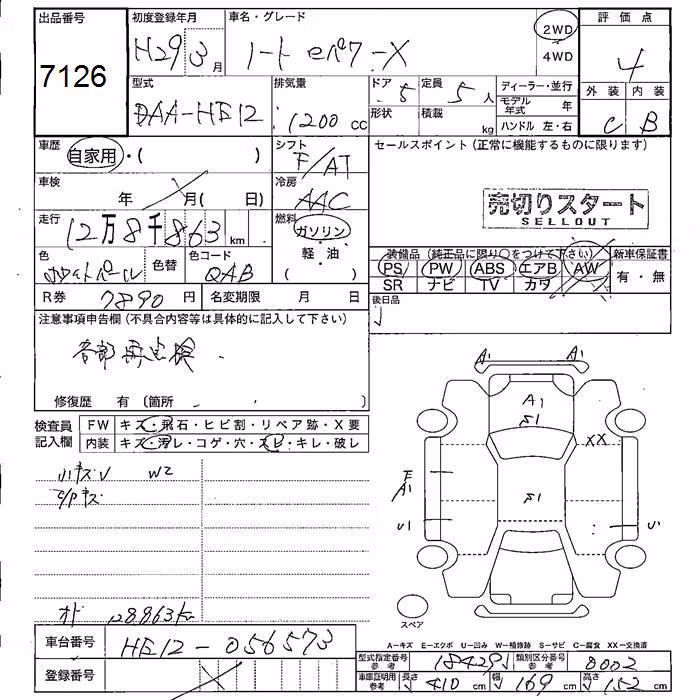 出品番号 初度登録年月 車名・グレード 2WD 4WD 評価点
7126 H29 3月 ノート eパワーX 4
型式 排気量 ドア 5 定員 5人 ディーラー・並行 外装 内装
DAA-HE12 1200cc 形状 積載 kg モデル年式 年 C B
ハンドル 左・右
車歴 自家用・( ) シフト F/AT セールスポイント(正常に機能するものに限ります)
車検 年 月( 日) 冷房 AAC
売切りスタート
SELLOUT
走行 12万8千863km 燃料 ガソリン・軽・油・( )
装備品(純正品に限り○をつけて下さい) 新車保証書
色 ホワイトパール 色替 色コード QAB
PS PW ABS エアB AW 有・無
SR ナビ TV カワ
R券 7890円 名変期限 月 日 後日品
注意事項申告欄(不具合内容等は具体的に記入して下さい)
修復歴 有(箇所 )
検査員記入欄 FW キズ・飛石・ヒビ割・リペア跡・X要
内装 キズ・汚レ・コゲ・穴・スレ・キレ・破レ
小キズV W2
C/Pキズ
A1 A1
A1
S1
XX
F
A1
S1
U1
オド 128863km
スペア
車台番号 HE12-056573
登録番号
A-キズ E-エクボ U-凹み W-補修跡 S-サビ C-腐食 XX-交換済
型式指定番号 参考 18429 類別区分番号 参考 0002
車庫証明用 参考 長さ 410cm 幅 169cm 高さ 152cm